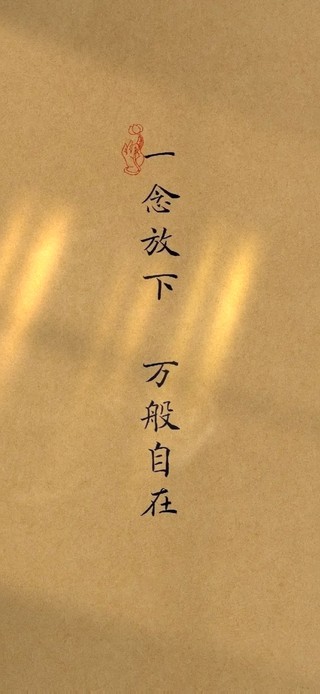 一念放下
万般自在